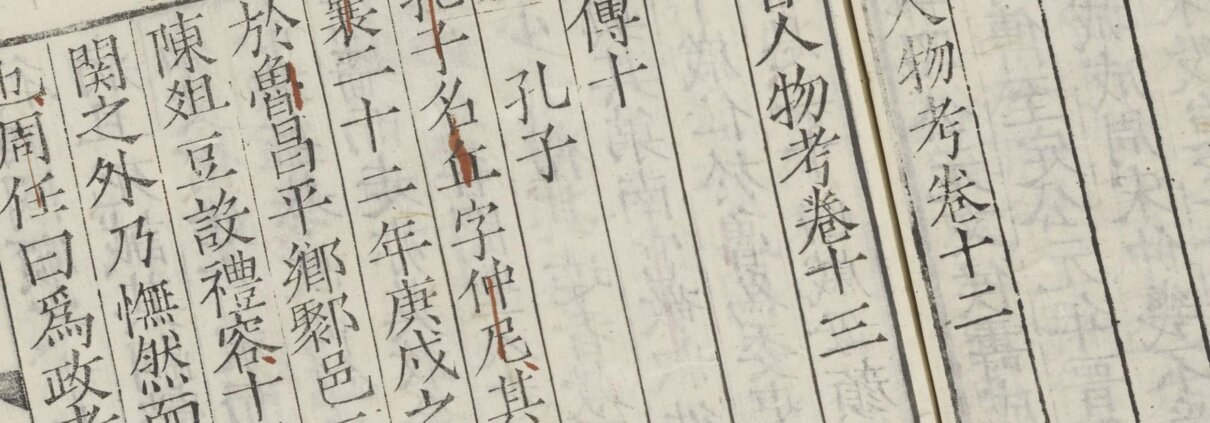 人物考卷十二
人物考卷十三
傳十
孔子
孔子名丘字仲尼其
襄二十二年庚戌之
於魯昌平鄉鄹邑
陳俎豆設禮容十
関之外乃憮然而
也周任曰爲政者